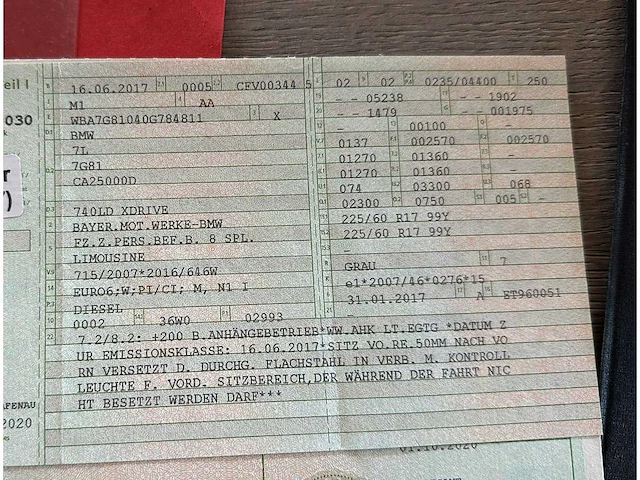 eil I
16.06.2017 0005 CFV00344 5 02 02 0235/04400 250
M1 AA - - 05238 - - 1902
WBA7G81040G784811 X - - 1479 - - 001975
030
BMW - 00100 -
7L 0137 002570 002570
7G81 01270 01360 -
CA25000D 01270 01360 -
074 03300 068
02300 0750 005 -
740LD XDRIVE 225/60 R17 99Y
BAYER.MOT.WERKE-BMW 225/60 R17 99Y
FZ.Z.PERS.BEF.B. 8 SPL. -
LIMOUSINE GRAU 7
715/2007*2016/646W e1*2007/46*0276*15
EURO6;W;PI/CI; M, N1 I 31.01.2017 A ET960051
DIESEL
0002 36W0 02993
7.2/8.2: +200 B.ANHÄNGEBETRIEB*WW.AHK LT.EGTG *DATUM Z
UR EMISSIONSKLASSE: 16.06.2017*SITZ VO.RE.50MM NACH VO
RN VERSETZT D. DURCHG. FLACHSTAHL IN VERB. M. KONTROLL
LEUCHTE F. VORD. SITZBEREICH,DER WÄHREND DER FAHRT NIC
HT BESETZT WERDEN DARF***
AFENAU
2020
01.10.2020